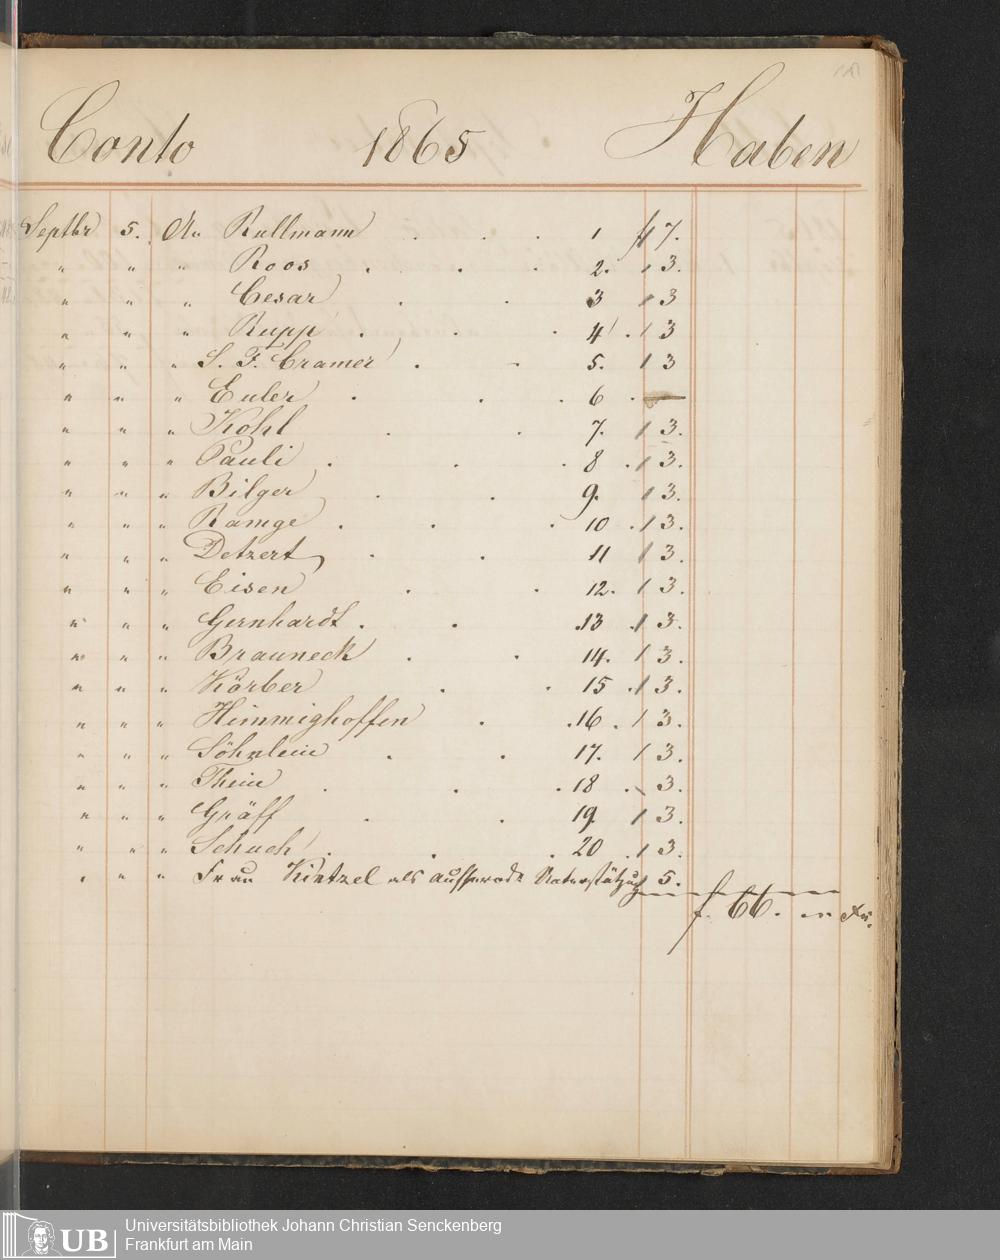 Conto 1865 Haben
Septbr 5. An Rullmann . . . 1 f 7.
" " " Roos . . . 2. / 3.
" " " Cesar . . 3 / 3
" " " Rupp . . . 4 . / 3
" " " S. F. Cramer . - 5. / 3
" " " Euler . . . 6 . —
" " " Kohl . . 7. / 3.
" " " Pauli . . . 8 . / 3.
" " " Bilger . . 9. / 3.
" " " Ramge . . . 10 . / 3.
" " " Detzert . . 11 / 3.
" " " Eisen . . 12. / 3.
" " " Gernhardt . . . 13 . / 3.
" " " Brauneck . . 14. / 3.
" " " Körber . . 15 . / 3.
" " " Himmighoffen . . 16 . / 3.
" " " Söhnlein . . 17. / 3.
" " " Thein . . . 18 . \ 3.
" " " Gräff . . 19. / 3.
" " " Schuch . . . 20 . / 3.
" " " Frau Kintzel als ausserordt Unterstützug 5.
f. 66. " Xr.
Universitätsbibliothek Johann Christian Senckenberg
Frankfurt am Main
UB